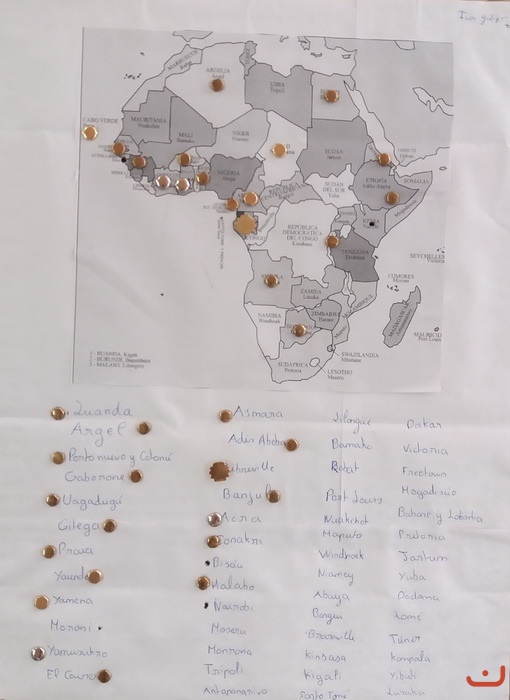 MARRUECOS
Rabat
ARGELIA
Argel
LIBIA
Trípoli
CABO VERDE
MAURITANIA
Nuakchot
MALI
Bamako
NÍGER
Niamey
SUDÁN
Jartum
NIGERIA
Abuja
ETIOPÍA
Addis Abeba
SOMALIA
Mogadiscio
SUDÁN
DEL SUR
Yuba
REPÚBLICA
DEMOCRÁTICA
DEL CONGO
Kinshasa
SEYCHELLES
Victoria
COMORES
Moroni
ZAMBIA
Lusaka
ZIMBABWE
Harare
NAMIBIA
Windhoek
MADAGASCAR
MAURICIO
Port Louis
SWAZILANDIA
Mbabane
SUDÁFRICA
Pretoria
LESOTHO
Maseru
1 - RUANDA, Kigali
2 - BURUNDI, Bujumbura
3 - MALAWI, Lilongwe
Luanda
Argel
Porto nuevo y Cotonú
Gaborone
Uagadugú
Gitega
Praia
Yaunde
Yamena
Moroni
Yamusukro
El Cairo
Asmara
Adis Abeba
Libreville
Banjul
Acra
Conakri
Bisáu
Malabo
Nairobi
Maseru
Monrovia
Trípoli
Antananarivo
Lilongüe
Bamako
Rabat
Port Louis
Nuakchot
Maputo
Windhoek
Niamey
Abuya
Bangui
Brazaville
Kinsasa
Kigali
Santo Tomé
Dakar
Victoria
Freetown
Mogadiscio
Pretoria
Jartum
Yuba
Dodoma
Lomé
Túnez
Kampala
Yibuti
Lusaka